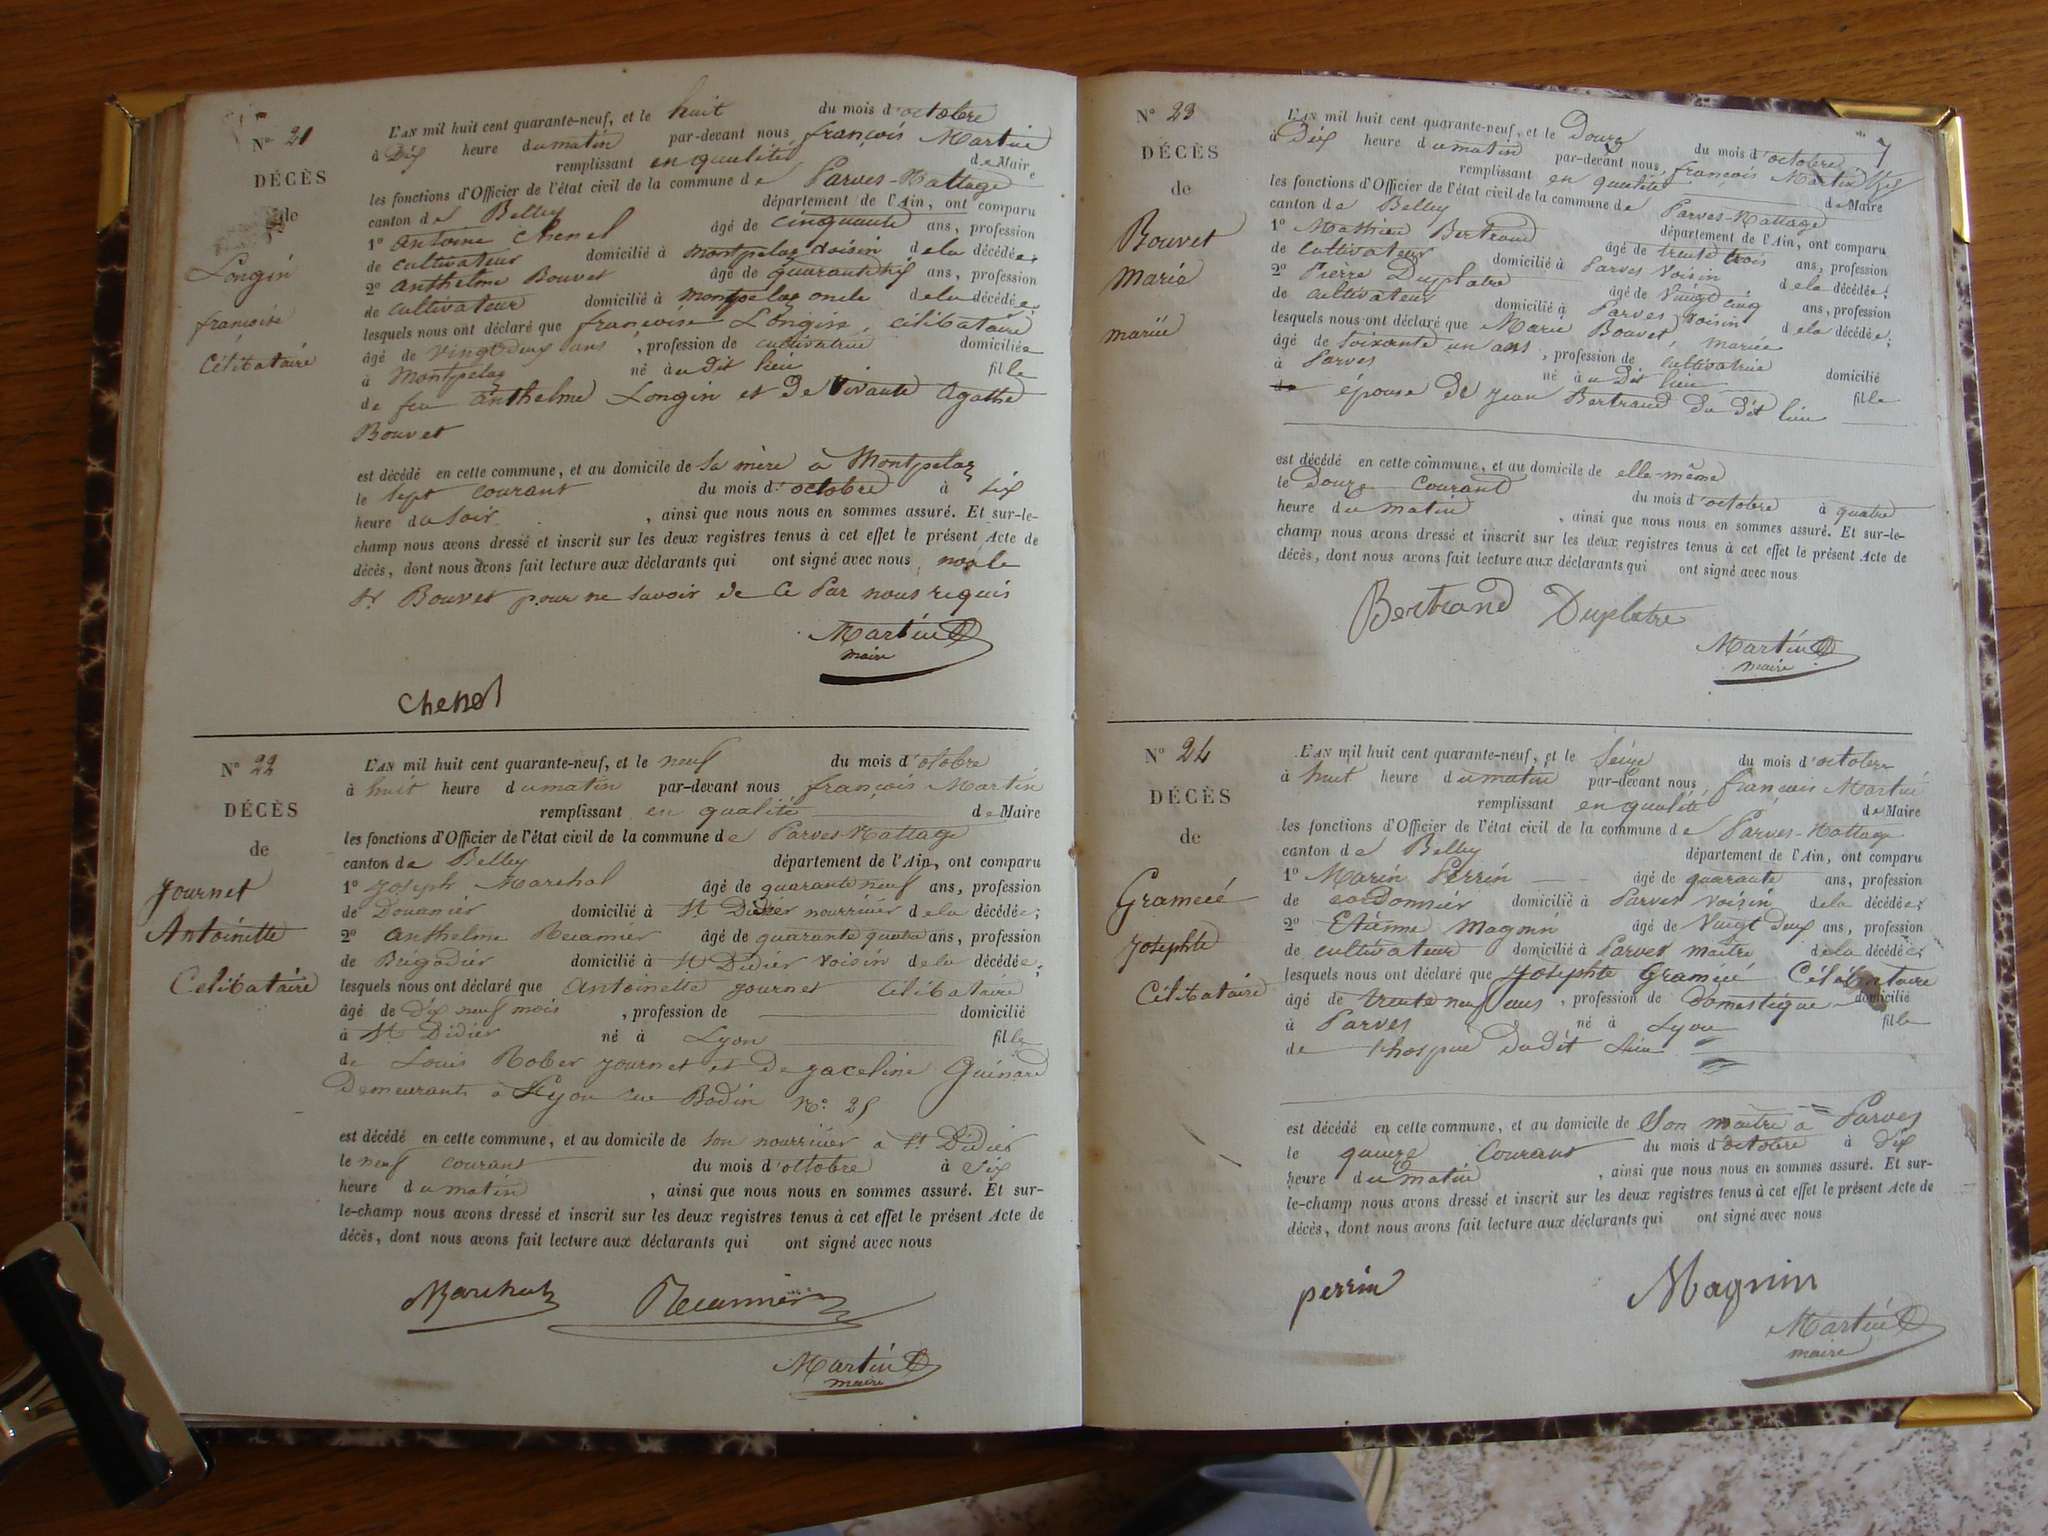 N° 21
DÉCÈS
de
Longin
françoise
Célibataire
L'AN mil huit cent quarante-neuf, et le huit du mois d'octobre
à Dix heure du matin par-devant nous françois Martin
remplissant en qualité de Maire
les fonctions d'Officier de l'état civil de la commune de Parves-Nattage
canton de Belley département de l'Ain, ont comparu
1° Antoine Chenel âgé de cinquante ans, profession
de cultivateur domicilié à Montpelaz voisin de la décédée;
2° Anthelme Bouvet âgé de quarante six ans, profession
de cultivateur domicilié à Montpelaz oncle de la décédée;
lesquels nous ont déclaré que françoise Longin, célibataire
âgé de vingt deux ans, profession de cultivatrice domiciliée
à Montpelaz né au dit lieu fille
de feu Anthelme Longin et de vivante Agathe
Bouvet
est décédé en cette commune, et au domicile de sa mère à Montpelaz
le sept courant du mois d'octobre à six
heure du soir, ainsi que nous nous en sommes assuré. Et sur-le-
champ nous avons dressé et inscrit sur les deux registres tenus à cet effet le présent Acte de
décès, dont nous avons fait lecture aux déclarants qui ont signé avec nous, non le
Sr Bouvet pour ne savoir de ce par nous requis
Martin
maire
Chenel
N° 22
DÉCÈS
de
Journet
Antoinette
Célibataire
L'AN mil huit cent quarante-neuf, et le neuf du mois d'octobre
à huit heure du matin par-devant nous françois Martin
remplissant en qualité de Maire
les fonctions d'Officier de l'état civil de la commune de Parves-Nattage
canton de Belley département de l'Ain, ont comparu
1° Joseph Marchal âgé de quarante neuf ans, profession
de Douanier domicilié à St Didier nourricier de la décédée;
2° Anthelme Récamier âgé de quarante quatre ans, profession
de Brigadier domicilié à St Didier voisin de la décédée;
lesquels nous ont déclaré que Antoinette Journet célibataire
âgé de dix neuf mois, profession de domicilié
à St Didier né à Lyon fille
de Louis Rober Journet et de Jaceline Guinard
Demeurants à Lyon rue Bodin N° 25
est décédé en cette commune, et au domicile de son nourricier à St Didier
le neuf courant du mois d'octobre à six
heure du matin, ainsi que nous nous en sommes assuré. Et sur-
le-champ nous avons dressé et inscrit sur les deux registres tenus à cet effet le présent Acte de
décès, dont nous avons fait lecture aux déclarants qui ont signé avec nous
Marchal Récamier
Martin
maire
7
N° 23
DÉCÈS
de
Bouvet
Marie
mariée
L'AN mil huit cent quarante-neuf, et le Douze du mois d'octobre
à Dix heure du matin par-devant nous, françois Martin
remplissant en qualité de Maire
les fonctions d'Officier de l'état civil de la commune de Parves-Nattage
canton de Belley département de l'Ain, ont comparu
1° Mathieu Bertrand âgé de trente trois ans, profession
de cultivateur domicilié à Parves voisin de la décédée;
2° Pierre Duplatre âgé de vingt cinq ans, profession
de cultivateur domicilié à Parves voisin de la décédée;
lesquels nous ont déclaré que Marie Bouvet, mariée
âgé de soixante un ans, profession de cultivatrice domicilié
à Parves né au dit lieu fille
de épouse de Jean Bertrand du dit lieu
est décédé en cette commune, et au domicile de elle-même
le Douze courant du mois d'octobre à quatre
heure du matin, ainsi que nous nous en sommes assuré. Et sur-le-
champ nous avons dressé et inscrit sur les deux registres tenus à cet effet le présent Acte de
décès, dont nous avons fait lecture aux déclarants qui ont signé avec nous
Bertrand Duplatre
Martin
maire
N° 24
DÉCÈS
de
Josephte
Célibataire
L'AN mil huit cent quarante-neuf, et le Seize du mois d'octobre
à huit heure du matin par-devant nous, françois Martin
remplissant en qualité de Maire
les fonctions d'Officier de l'état civil de la commune de Parves-Nattage
canton de Belley département de l'Ain, ont comparu
1° Marin Perrin âgé de quarante ans, profession
de cordonnier domicilié à Parves voisin de la décédée;
2° Etienne Magnin âgé de vingt deux ans, profession
de cultivateur domicilié à Parves maître de la décédée;
lesquels nous ont déclaré que Josephte Célibataire
âgé de trente neuf ans, profession de domestique domicilié
à Parves né à Lyon fille
de l'hospice dudit lieu
est décédé en cette commune, et au domicile de Son maître à Parves
le quinze Courant du mois d'octobre à dix
heure du matin, ainsi que nous nous en sommes assuré. Et sur-
le-champ nous avons dressé et inscrit sur les deux registres tenus à cet effet le présent Acte de
décès, dont nous avons fait lecture aux déclarants qui ont signé avec nous
perrin Magnin
Martin
maire